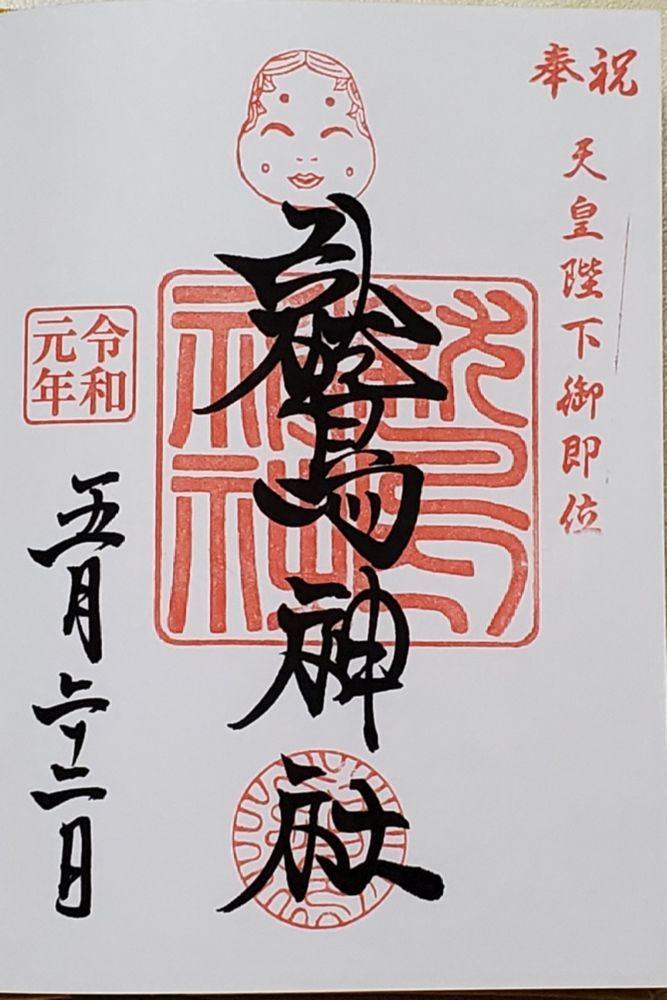 奉祝
天皇陛下御即位
鷲神社
令和
元年
五月二十二日